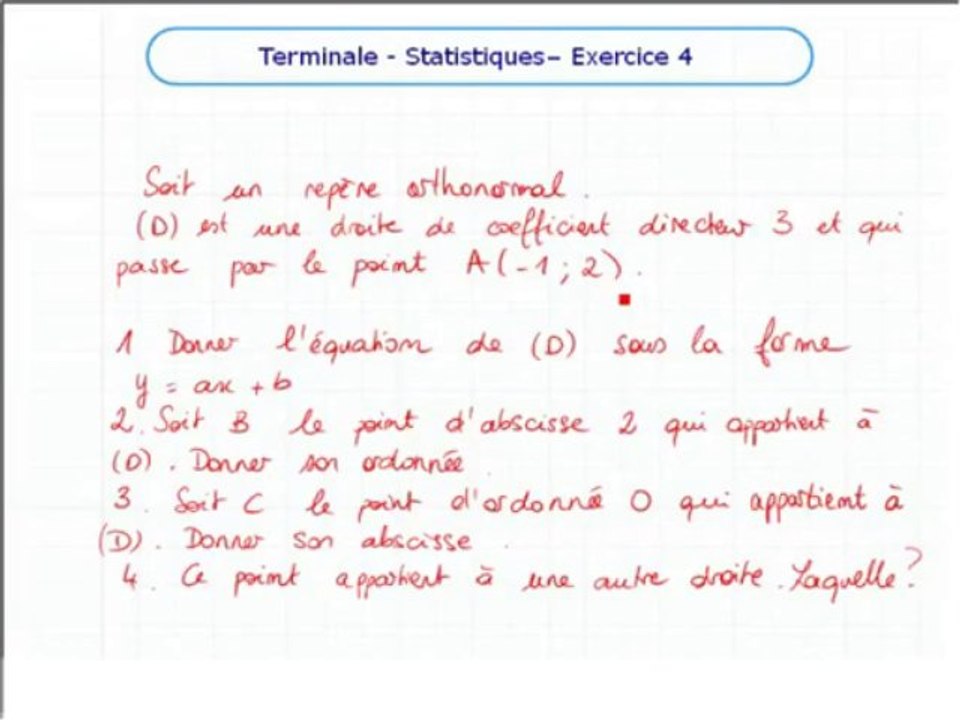 Terminale - Statistiques– Exercice 4
Soit un repère orthonormal.
(D) est une droite de coefficient directeur 3 et qui
passe par le point A(-1;2).
1 Donner l'équation de (D) sous la forme
y = ax + b
2. Soit B le point d'abscisse 2 qui appartient à
(D). Donner son ordonnée.
3. Soit C le point d'ordonné 0 qui appartient à
(D). Donner son abscisse.
4. Ce point appartient à une autre droite. Laquelle?